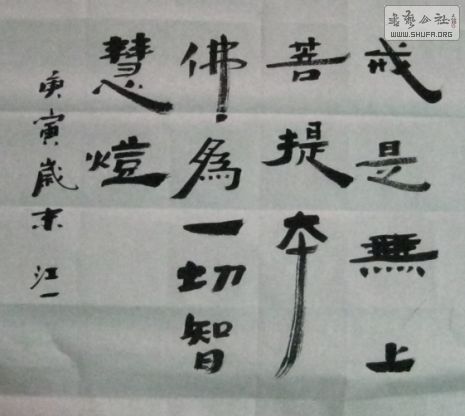 戒是無上
菩提本
佛為一切智
慧燈
庚寅歲末 江一
書藝公社
WWW.SHUFA.ORG